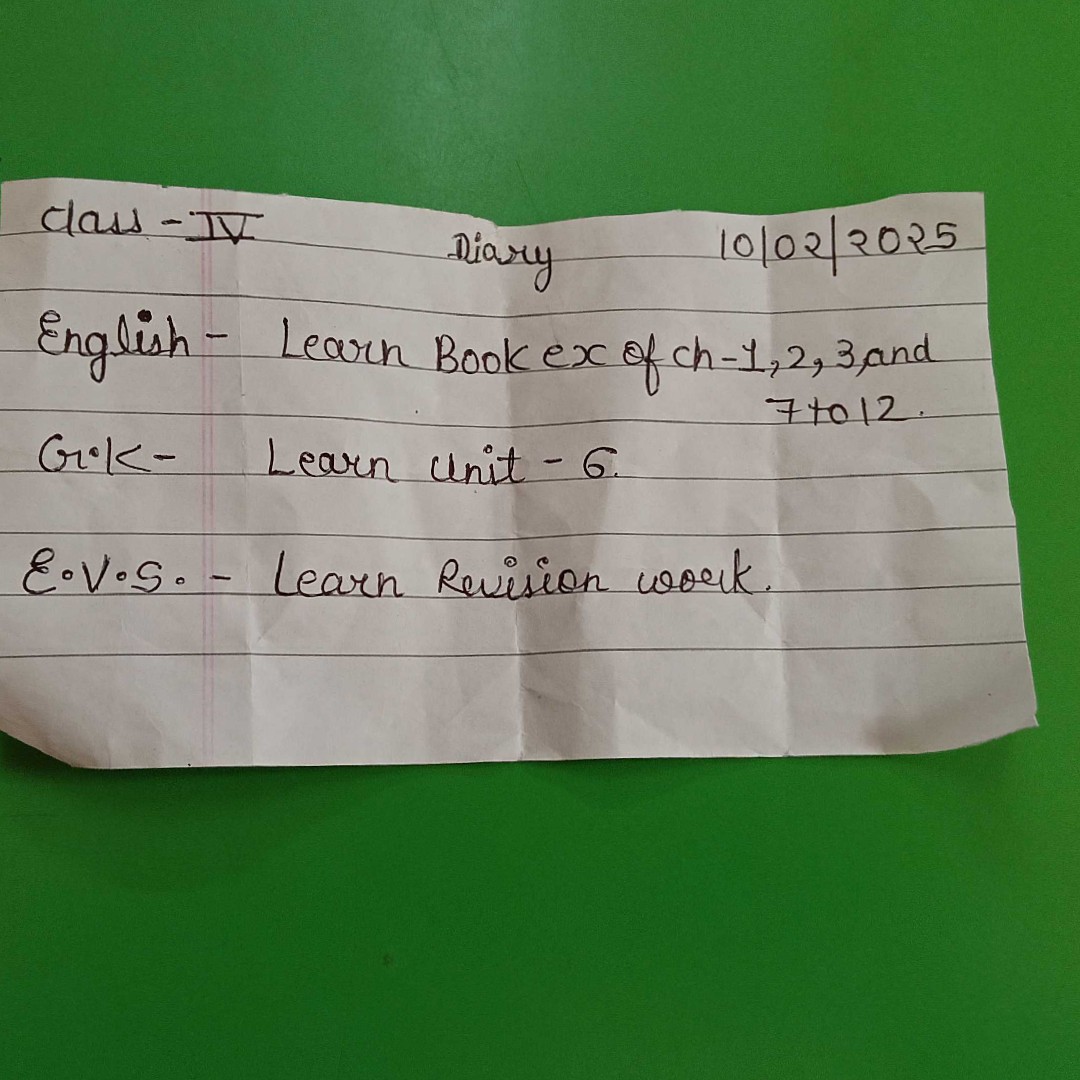 Class - IV Diary 10/02/2025
English - Learn Book ex of ch-1, 2, 3, and
7 to 12.
G.K - Learn unit - 6.
E.V.S. - Learn Revision work.